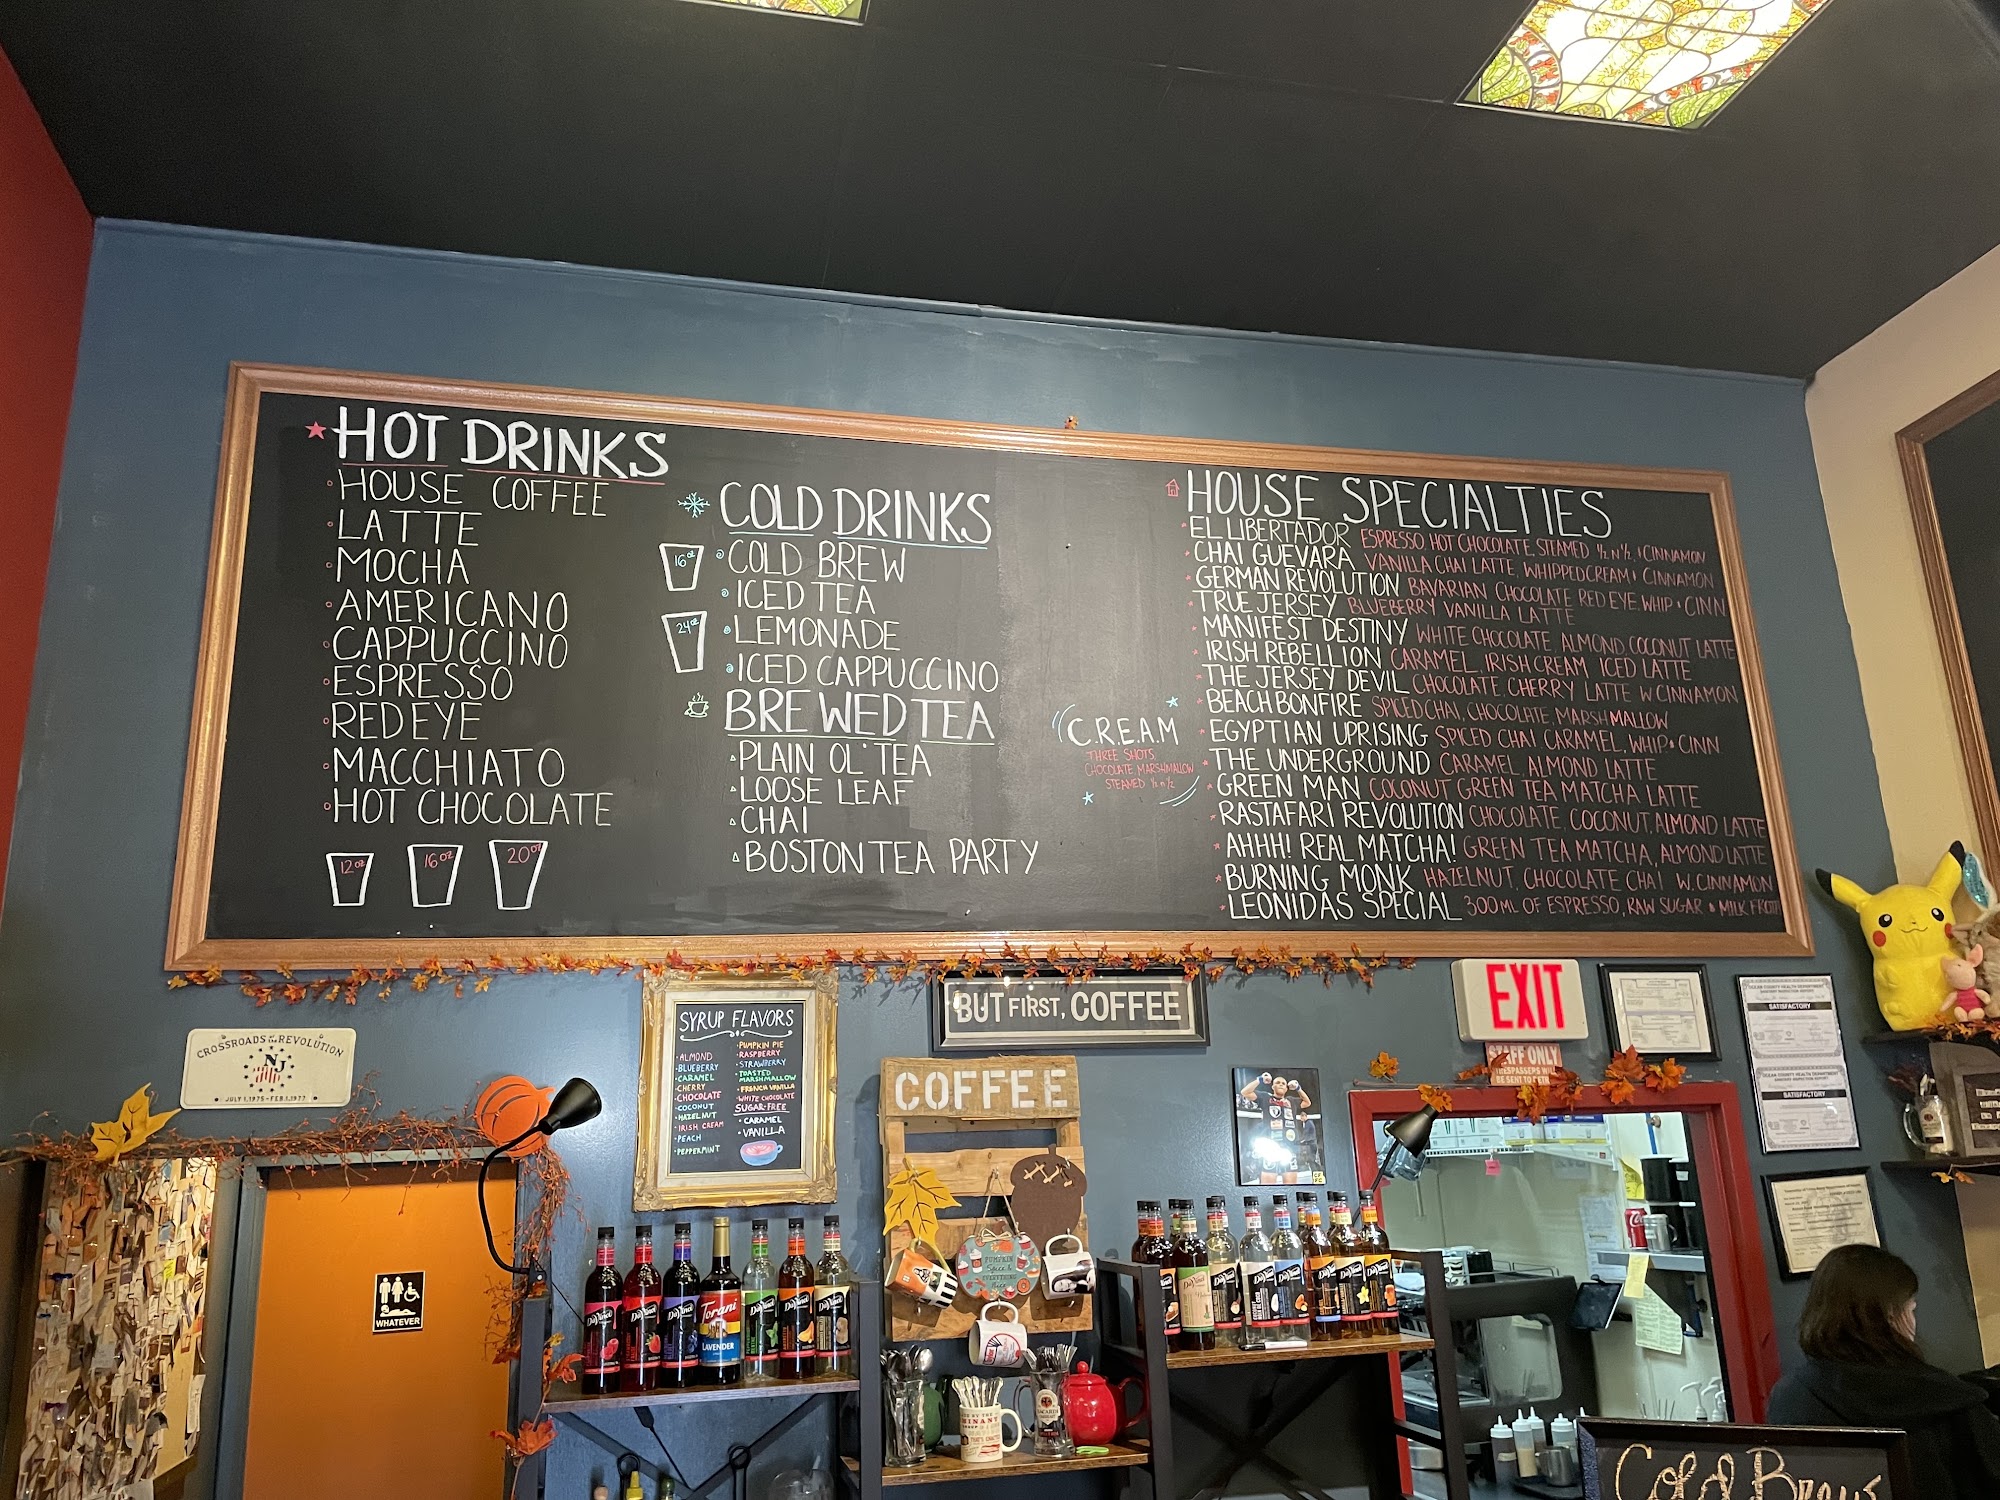 HOT DRINKS
HOUSE COFFEE
LATTE
MOCHA
AMERICANO
CAPPUCCINO
ESPRESSO
RED EYE
MACCHIATO
HOT CHOCOLATE
12oz 16oz 20oz
COLD DRINKS
16oz
24oz
COLD BREW
ICED TEA
LEMONADE
ICED CAPPUCCINO
BREWED TEA
PLAIN OL' TEA
LOOSE LEAF
CHAI
BOSTON TEA PARTY
C.R.E.A.M
THREE SHOTS,
CHOCOLATE MARSHMALLOW
STEAMED ½ n ½
HOUSE SPECIALTIES
EL LIBERTADOR ESPRESSO, HOT CHOCOLATE, STEAMED ½ n ½, & CINNAMON
CHAI GUEVARA VANILLA CHAI LATTE, WHIPPED CREAM & CINNAMON
GERMAN REVOLUTION BAVARIAN CHOCOLATE RED EYE, WHIP & CINN
TRUE JERSEY BLUEBERRY VANILLA LATTE
MANIFEST DESTINY WHITE CHOCOLATE, ALMOND, COCONUT LATTE
IRISH REBELLION CARAMEL, IRISH CREAM ICED LATTE
THE JERSEY DEVIL CHOCOLATE, CHERRY LATTE W CINNAMON
BEACH BONFIRE SPICED CHAI, CHOCOLATE, MARSHMALLOW
EGYPTIAN UPRISING SPICED CHAI, CARAMEL, WHIP & CINN
THE UNDERGROUND CARAMEL, ALMOND LATTE
GREEN MAN COCONUT GREEN TEA MATCHA LATTE
RASTAFARI REVOLUTION CHOCOLATE, COCONUT, ALMOND LATTE
AHHH! REAL MATCHA! GREEN TEA MATCHA, ALMOND LATTE
BURNING MONK HAZELNUT, CHOCOLATE CHAI W. CINNAMON
LEONIDAS SPECIAL 300ML OF ESPRESSO, RAW SUGAR & MILK FROTH
CROSSROADS OF THE REVOLUTION
NJ
JULY 1, 1975 - FEB. 1, 1977
SYRUP FLAVORS
ALMOND
BLUEBERRY
CARAMEL
CHERRY
CHOCOLATE
COCONUT
HAZELNUT
IRISH CREAM
PEACH
PEPPERMINT
PUMPKIN PIE
RASPBERRY
STRAWBERRY
TOASTED
MARSHMALLOW
FRENCH VANILLA
WHITE CHOCOLATE
SUGAR-FREE
CARAMEL
VANILLA
BUT FIRST, COFFEE
COFFEE
EXIT
STAFF ONLY
TRESPASSERS WILL
OCEAN COUNTY HEALTH DEPARTMENT
SATISFACTORY
OCEAN COUNTY HEALTH DEPARTMENT
SATISFACTORY
WHATEVER
PUMPKIN
Spice &
EVERYTHING
Nice
DaVinci
DaVinci
DaVinci
Torani
LAVENDER
DaVinci
DaVinci
DaVinci
DaVinci
DaVinci
DaVinci
DaVinci
DaVinci
DaVinci
Cold Brew